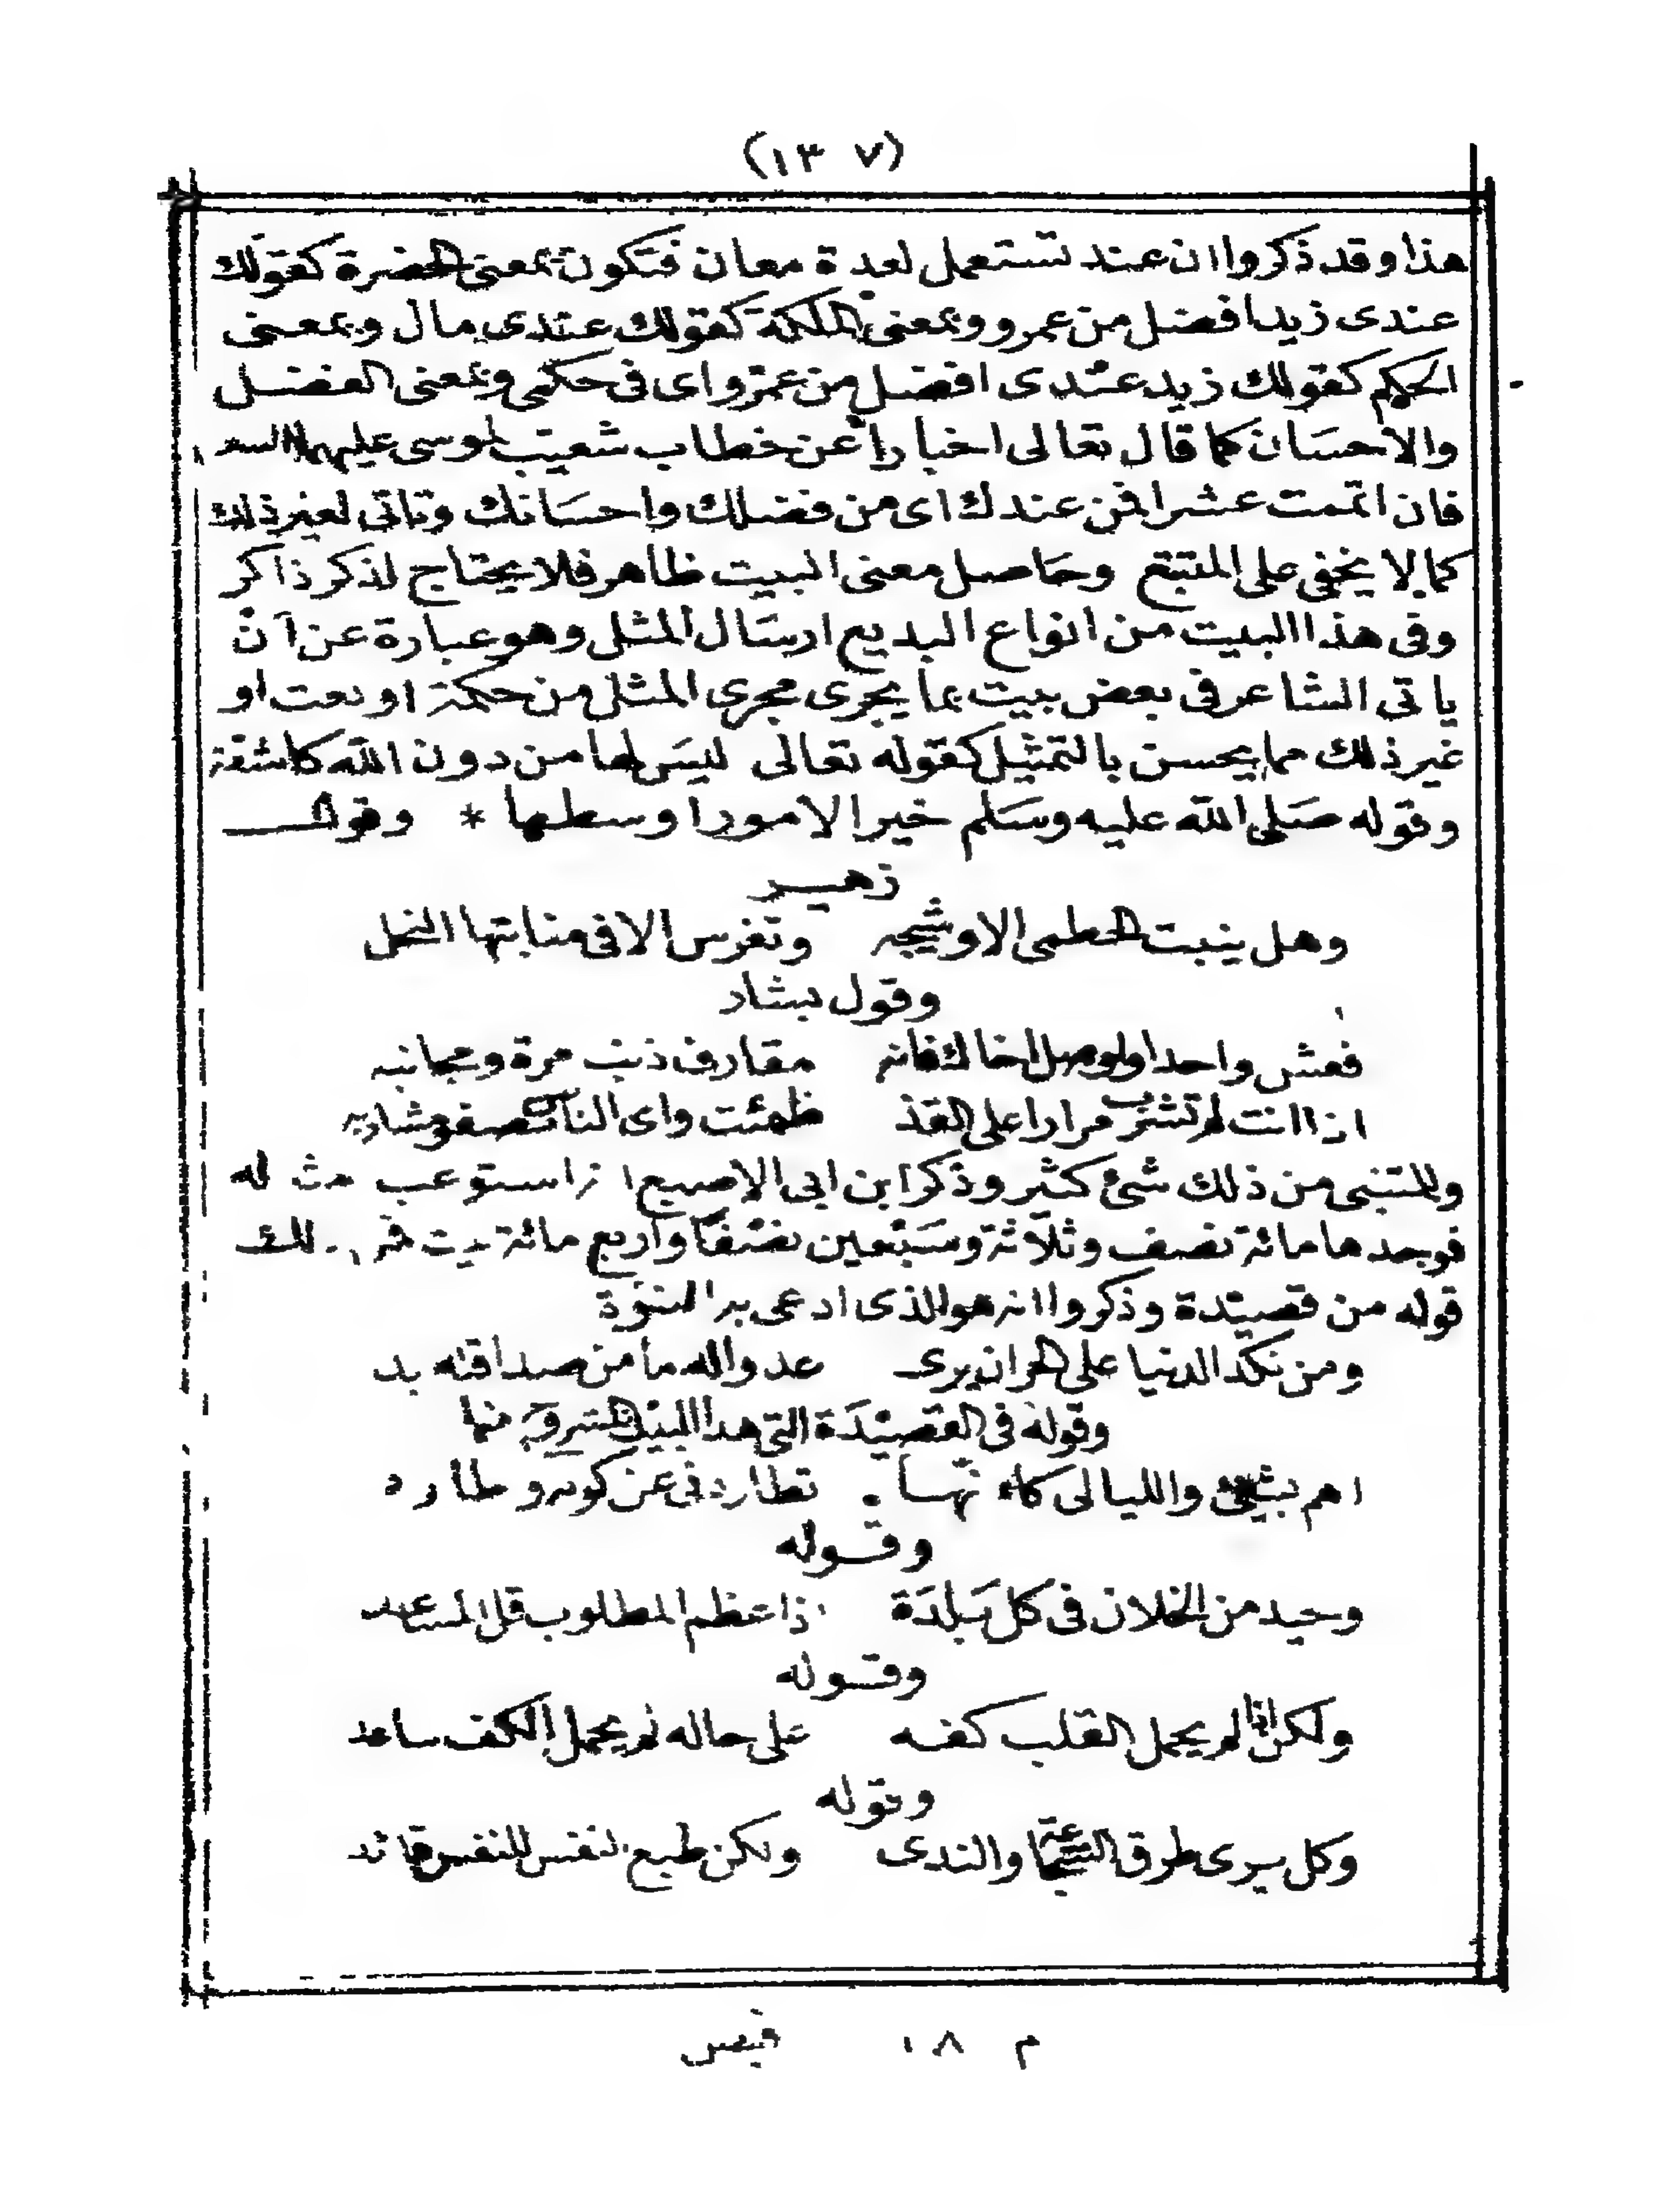 (١٣٧)
هذا وقد ذكروا ان عند تستعمل لعدة معان فتكون بمعنى الحضرة كقولك
عندى زيد افضل من عمرو وبمعنى الملكة كقولك عندى مال وبمعنى
الحكم كقولك زيد عندى افضل من عمرو اى فى حكمى وبمعنى الفضل
والاحسان كما قال تعالى اخبارا عن خطاب شعيب لموسى عليهما السـ
فان اتممت عشرا فمن عندك اى من فضلك واحسانك وتاتى لغير ذلك
كما لا يخفى على المتتبع وحاصل معنى البيت ظاهر فلا يحتاج لذكر ذاكر
وفى هذا البيت من انواع البديع ارسال المثل وهو عبارة عن ان
ياتى الشاعر فى بعض بيت بما يجرى مجرى المثل من حكمة او نعت او
غير ذلك مما يحسن بالتمثيل كقوله تعالى ليس لها من دون الله كاشفة
وقوله صلى الله عليه وسلم خير الامور اوسطها * وقول
زهير
وهل ينبت الخطمى الا وشيجه وتغرس الا فى منابتها النخل
وقول بشار
فعش واحدا اوصل اخاك فانه مقارف ذنب مرة ومجانبه
اذا انت لم تشرب مرارا على القذ ظمئت واى الناس تصفو مشاربه
وللمتنبى من ذلك شئ كثير وذكر ابن ابى الاصبع انه استوعب له
فوجدها مائة نصف وثلاثة وسبعين نصفا واربع مائة بيت
قوله من قصيدة وذكروا انه هو الذى ادعى به النبوة
ومن نكد الدنيا على الحر ان يرى عدوا له ما من صداقته بد
وقوله فى القصيدة التى هذا البيت منها
اهم بشئ والليالى كانها تطاردنى عن كونه واطارد
وقوله
وحيد من الخلان فى كل بلدة اذا عظم المطلوب قل المساعد
وقوله
ولكن اذا لم يحمل القلب كفه على حاله لم يحمل الكف ساعد
وقوله
وكل يرى طرق الشجاعة والندى ولكن طبع النفس للنفس قائد
م ١٨ قبص